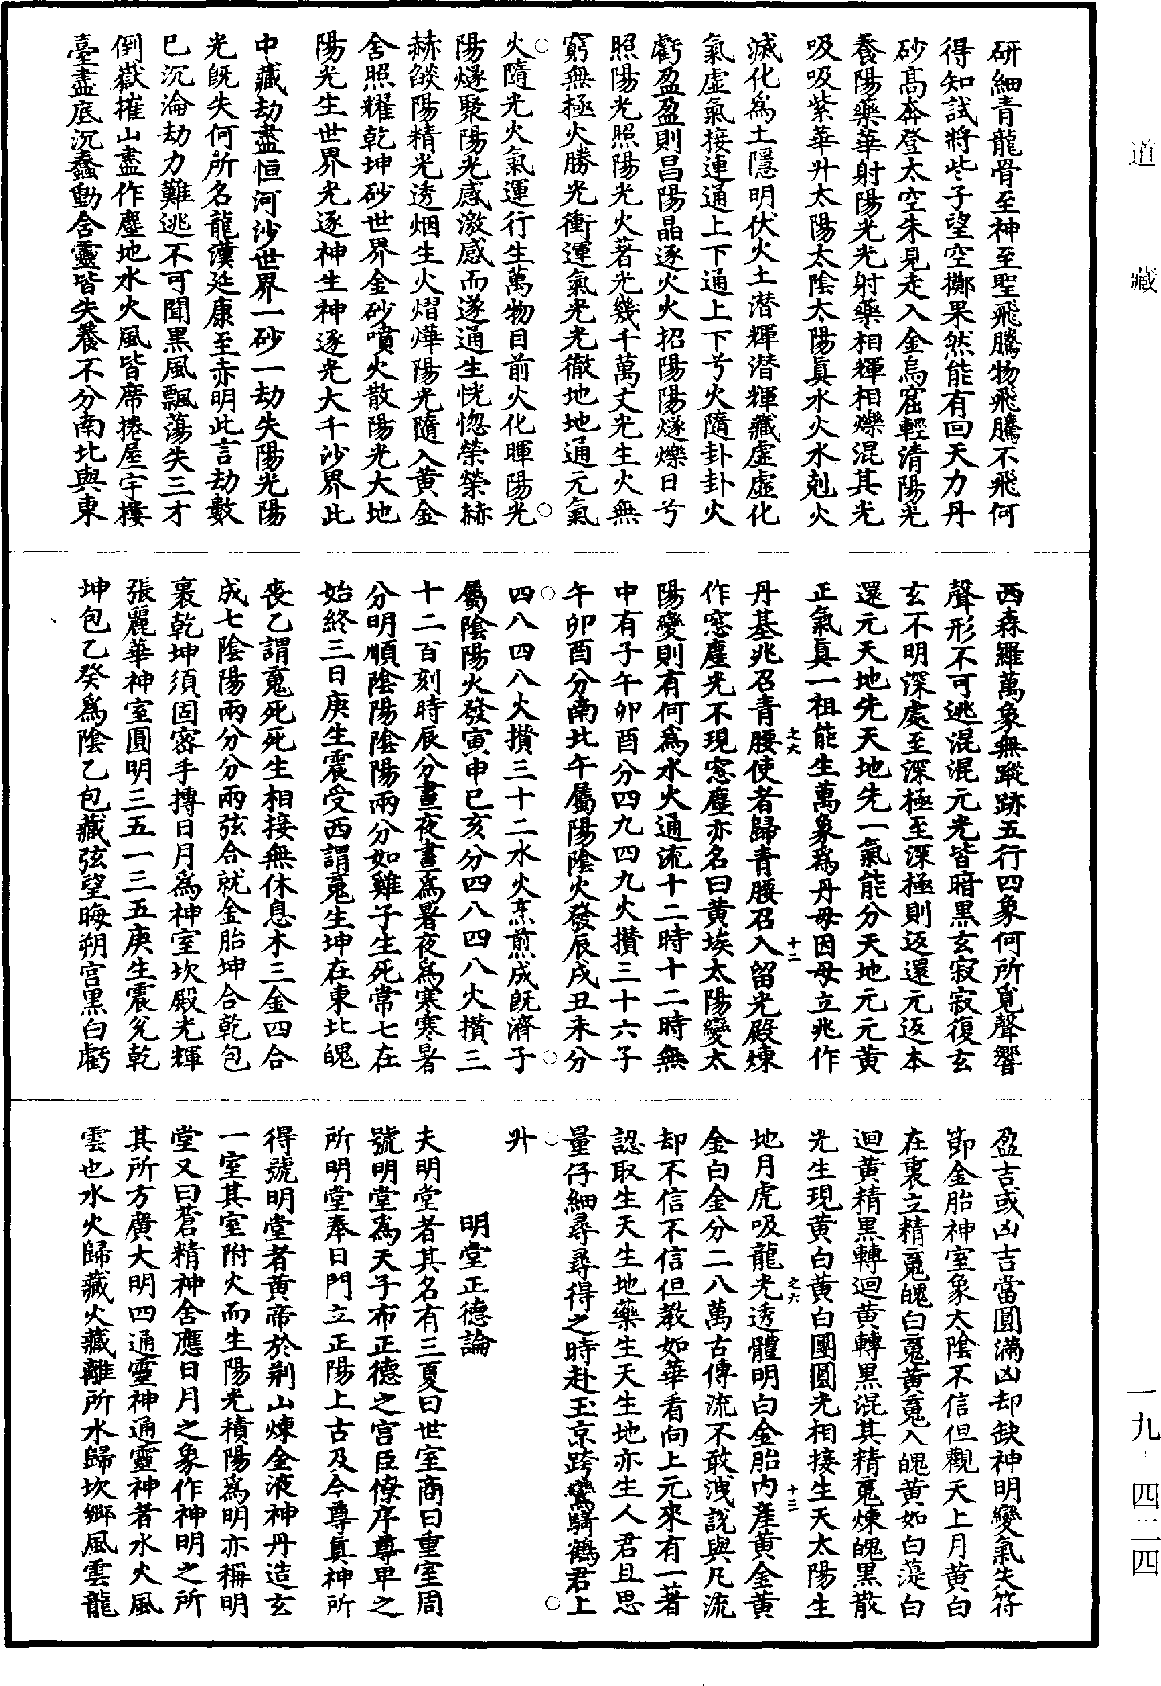 道藏
研細青龍骨至神至聖飛騰物飛騰不飛何
得知試將些子望空擲果然能有回天力丹
砂高奔登太空未見走入金烏窟輕清陽光
養陽藥華射陽光光射藥相輝相爍混其光
吸吸紫華升太陽太陰太陽真水火水剋火
滅化為土隱明伏火土潛輝潛輝藏虛虛化
氣虛氣接連通上下通上上下兮火隨卦卦火
虧盈盈則昌陽晶逐火火招陽陽燧爍日兮
照陽光照陽光火著光幾千萬丈光生火無
窮無極火勝光衝運氣光光徹地地通元氣
火隨光火氣運行生萬物目前火化暉陽光
陽燧聚陽光感激感而遂通生恍惚榮榮赫
赫燄陽精光透烟生火熠燁陽光隨入黃金
舍照耀乾坤砂世界金砂噴火散陽光大地
陽光生世界光逐神生神逐光大千沙界此
中藏劫盡恒河沙世界一砂一劫失陽光陽
光既失何所名龍漢延康至赤明此言劫數
已沉淪劫力難逃不可聞黑風飄蕩失三才
倒嶽摧山盡作塵地水火風皆席捲屋宇樓
臺盡底沉蠢動含靈皆失養不分南北與東
西森羅萬象無蹤跡五行四象何所覓聲響
聲形不可逃混混元光皆暗黑玄寂寂復玄
玄不明深處至深極至深極則返還元返本
還元天地先天地先一氣能分天地元元黃
正氣真一祖能生萬象為丹母因母立兆作
丹基兆召青腰使者歸青腰召入留光殿煉
作窓塵光不現窓塵亦名曰黃埃太陽變太
陽變則有何為水火通流十二時十二時無
中有子午卯酉分四九四九火攢三十六子
午卯酉分南北午屬陽陰火發辰戌丑未分
四八四八火攢三十二水火烹煎成既濟子
屬陰陽火發寅申巳亥分四八四八火攢三
十二百刻時辰分晝夜晝為暑夜為寒寒暑
分明順陰陽陰陽兩分如雞子生死常七在
始終三日庚生震受西謂䰟生坤在東北魄
喪乙謂䰟死死生相接無休息木三金四合
成七陰陽兩分分兩弦合就金胎坤合乾包
裹乾坤須固密手摶日月為神室坎殿光輝
張麗華神室圓明三五一三五庚生震兌乾
坤包乙癸為陰乙包藏弦望晦朔宫黑白虧
盈吉或凶吉當圓滿凶却缺神明變氣失符
節金胎神室象太陰不信但觀天上月黃白
在裏立精䰟魄白䰟黃䰟入魄黃如白蕩白
迴黃精黑轉迴黃轉黑混其精䰟煉魄黑散
光生現黃白黃白團圓光相接生天太陽生
地月虎吸龍光透體明白金胎内產黃金黃
金白金分二八萬古傳流不敢洩說與凡流
却不信不信但教如華看向上元來有一著
認取生天生地藥生天生地亦生人君且思
量仔細尋尋得之時赴玉京跨鸞騎鶴君上
升
明堂正德論
夫明堂者其名有三夏曰世室商曰重室周
號明堂為天子布正德之宫臣僚序尊卑之
所明堂奉日門立正陽上古及今尊真神所
得號明堂者黃帝於荆山煉金液神丹造玄
一室其室附火而生陽光積陽為明亦稱明
堂又曰蒼精神舍應日月之象作神明之所
其所方廣大明四通靈神通靈神者水火風
雲也水火歸藏火藏離所水歸坎鄉風雲龍
之六
十二
之六
十三
一九·四二四